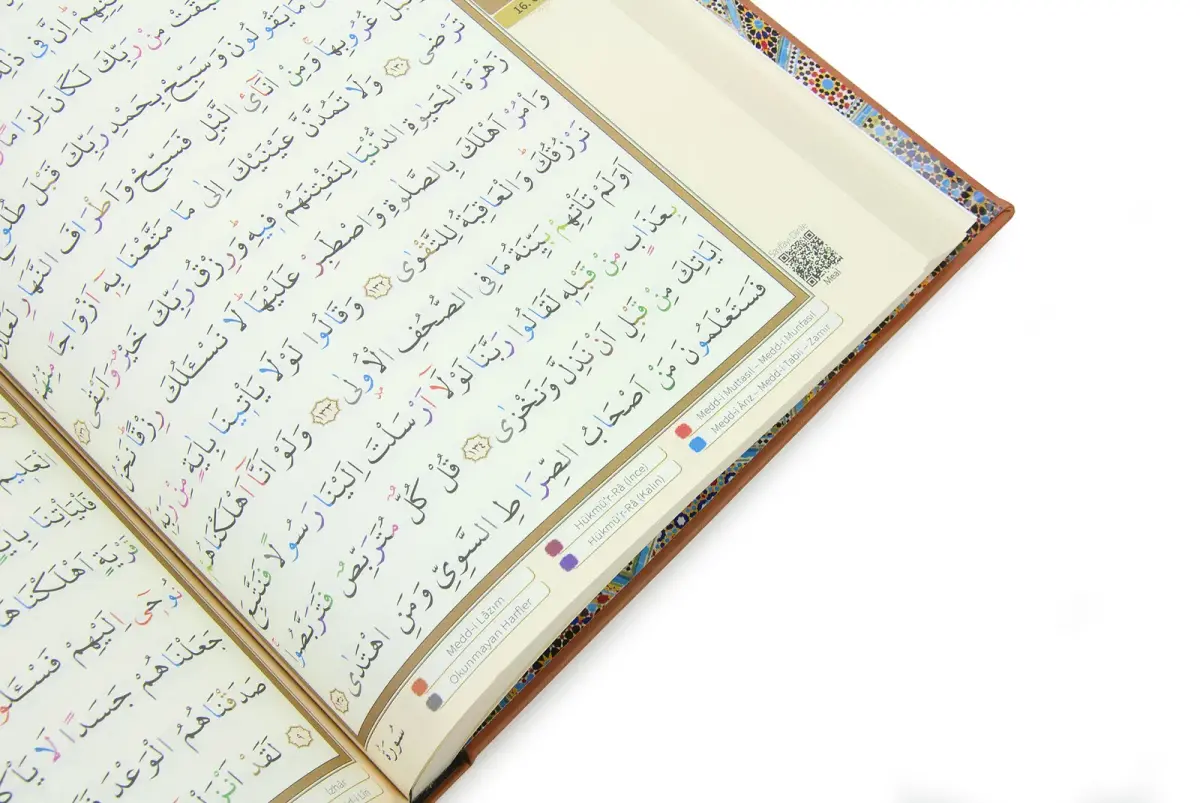 اِنَّ فِى ذٰلِكَ
مِنْ رَبِّكَ لَكَانَ لِزَامًا
مَا يَقُولُونَ وَسَبِّحْ بِحَمْدِ رَبِّكَ قَبْلَ طُلُوعِ
غُرُوبِهَا وَمِنْ اٰنَٓائِ الَّيْلِ فَسَبِّحْ وَاَطْرَافَ النَّهَارِ
تَرْضٰى ﴿١٣٠﴾ وَلَا تَمُدَّنَّ عَيْنَيْكَ اِلٰى مَا مَتَّعْنَا بِهٖٓ اَزْوَاجًا مِنْهُمْ
زَهْرَةَ الْحَيٰوةِ الدُّنْيَا لِنَفْتِنَهُمْ فٖيهِ وَرِزْقُ رَبِّكَ خَيْرٌ وَاَبْقٰى ﴿١٣١﴾
وَأْمُرْ اَهْلَكَ بِالصَّلٰوةِ وَاصْطَبِرْ عَلَيْهَا لَا نَسْـَٔلُكَ رِزْقًا نَحْنُ
نَرْزُقُكَ وَالْعَاقِبَةُ لِلتَّقْوٰى ﴿١٣٢﴾ وَقَالُوا لَوْلَا يَأْتٖينَا بِاٰيَةٍ مِنْ رَبِّهٖ
اَوَلَمْ تَأْتِهِمْ بَيِّنَةُ مَا فِى الصُّحُفِ الْاُولٰى ﴿١٣٣﴾ وَلَوْ اَنَّٓا اَهْلَكْنَاهُمْ
بِعَذَابٍ مِنْ قَبْلِهٖ لَقَالُوا رَبَّنَا لَوْلَٓا اَرْسَلْتَ اِلَيْنَا رَسُولًا فَنَتَّبِعَ
اٰيَاتِكَ مِنْ قَبْلِ اَنْ نَذِلَّ وَنَخْزٰى ﴿١٣٤﴾ قُلْ كُلٌّ مُتَرَبِّصٌ فَتَرَبَّصُوا
فَسَتَعْلَمُونَ مَنْ اَصْحَابُ الصِّرَاطِ السَّوِيِّ وَمَنِ اهْتَدٰى ﴿١٣٥﴾
Meal
Medd-i Lâzım
Okunmayan Harfler
Hükmü'r-Râ (İnce)
Hükmü'r-Râ (Kalın)
Medd-i Muttasıl - Medd-i Munfasıl
Medd-i Ârız - Medd-i Tabii - Zamir
سُورَةُ
الْعَلٖيمُ
فَلْيَأْتِنَا
قَرْيَةٍ اَهْلَكْنَاهَا
نُوحٖٓى اِلَيْهِمْ فَسْـَٔلُٓوا
جَعَلْنَاهُمْ جَسَدًا لَا
صَدَقْنَاهُمُ الْوَعْدَ
لَقَدْ
İzhâr